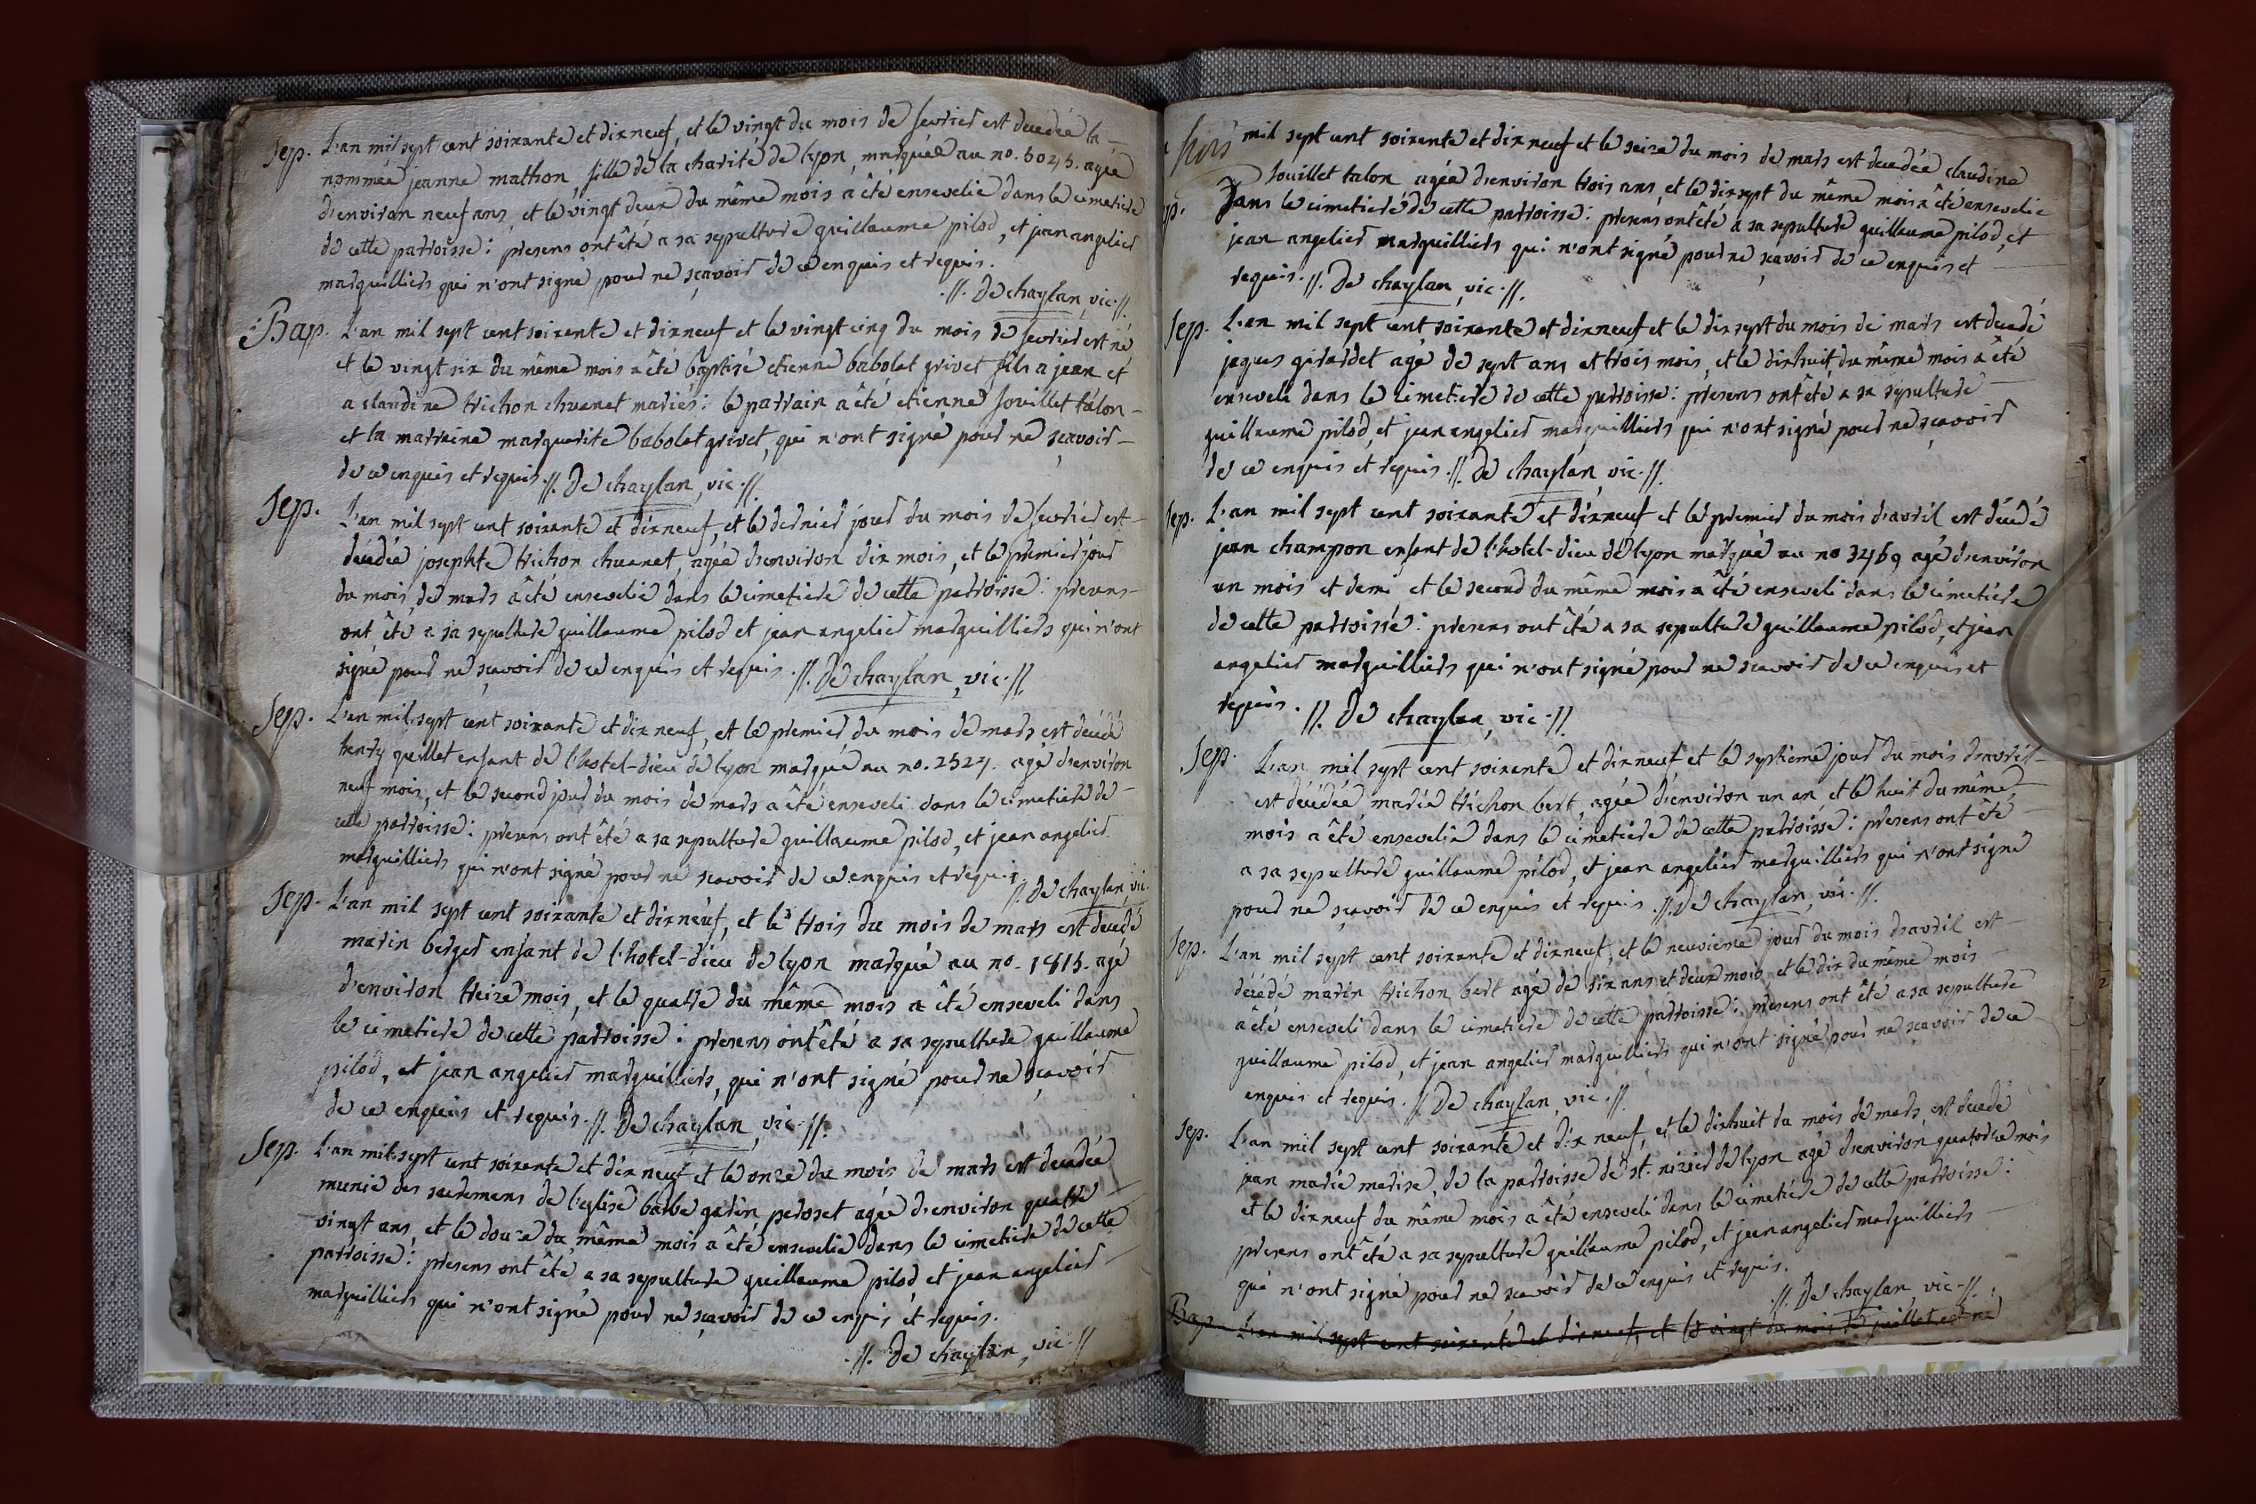 Sep. L'an mil sept cent soixante et dixneuf, et le vingt du mois de fevrier est decedée la
nommée jeanne mathon fille de la charité de lyon, marquée au no. 5025. agée
d'environ neuf ans, et le vingt deux du même mois a êté ensevelie dans le cimetiere
de cette parroisse: presens ont êté a sa sepulture guillaume pilod, et jean angelier
marguilliers qui n'ont signé pour ne sçavoir de ce enquis et requis.
.//. De chaylan, vic.//.
Bap. L'an mil sept cent soixente et dixneuf et le vingt cinq du mois de fevrier est né
et le vingt six du même mois a êté baptisé etienne babolat grivet fils a jean et
a claudine trichon chuenet mariés: le parrain a êté etienne souillet talon
et la marraine marguerite babolat grivet, qui n'ont signé pour ne sçavoir
de ce enquis et requis .//. De chaylan, vic.//.
Sep. L'an mil sept cent soixante et dixneuf, et le dernier jour du mois de fevrier est
décédée josephte trichon chuenet, agée d'environ dix mois, et le premier jour
du mois de mars a êté ensevelie dans le cimetiere de cette parroisse: presens
ont êté a sa sepulture guillaume pilod et jean angelier marguilliers qui n'ont
signé pour ne sçavoir de ce enquis et requis .//. De chaylan, vic.//.
Sep. L'an mil sept cent soixante et dix neuf, et le premier du mois de mars est décédé
henry quillet enfant de l'hotel-dieu de lyon marqué au no. 2527. agé d'environ
neuf mois, et le second jour du mois de mars a êté enseveli dans le cimetiere de
cette parroisse: presens ont êté a sa sepulture guillaume pilod, et jean angelier
marguilliers qui n'ont signé pour ne scavoir de ce enquis et requis
.//. De chaylan, vic.
Sep. L'an mil sept cent soixante et dixneuf, et le trois du mois de mars est decedé
marin berger enfant de l'hotel-dieu de lyon marqué au no. 1815. agé
d'environ treize mois, et le quatre du même mois a êté enseveli dans
le cimetiere de cette parroisse: presens ont êté a sa sepulture guillaume
pilod, et jean angelier marguilliers, qui n'ont signé pour ne sçavoir
de ce enquis et requis .//. De chaylan, vic.//.
Sep. L'an mil sept cent soixente et dix neuf et le onze du mois de mars est decedée
munie des sacremens de l'eglise barbe garin peroset agée d'environ quatre
vingt ans, et le douze du même mois a êté ensevelie dans le cimetiere de cette
parroisse: presens ont êté a sa sepulture guillaume pilod et jean angelier
marguilliers qui n'ont signé pour ne sçavoir de ce enquis et requis.
.//. De chaylan, vic.//
mil sept cent soixente et dix neuf et le seize du mois de mars est decedée claudine
souillet talon agée d'environ trois ans, et le dixsept du même mois a êté ensevelie
Dans le cimetiere de cette parroisse: presens ont êté a sa sepulture guillaume pilod, et
jean angelier marguilliers qui n'ont signé pour ne sçavoir de ce enquis et
requis .//. De chaylan, vic.//.
Sep. L'an mil sept cent soixante et dixneuf et le dixsept du mois de mars est decedé
jaques girardet agé de sept ans et trois mois, et le dixhuit du même mois a êté
enseveli dans le cimetiere de cette parroisse: presens ont êté a sa sepulture
guillaume pilod, et jean angelier marguilliers qui n'ont signé pour ne sçavoir
de ce enquis et requis .//. De chaylan, vic.//.
Sep. L'an mil sept cent soixante et dixneuf et le premier du mois d'avril est décédé
jean champon enfant de l'hotel-dieu de lyon marqué au no 3469 agé d'environ
un mois et demi et le second du même mois a êté enseveli dans le cimetiere
de cette parroisse: presens ont êté a sa sepulture guillaume pilod, et jean
angelier marguilliers qui n'ont signé pour ne scavoir de ce enquis et
requis. .//. De chaylan, vic.//.
Sep. L'an mil sept cent soixante et dixneuf et le septieme jour du mois d'avril
est décédée marie trichon bert, agée d'environ un an et le huit du même
mois a êté ensevelie dans le cimetiere de cette parroisse: presens ont êté
a sa sepulture guillaume pilod, et jean angelier marguilliers qui n'ont signé
pour ne sçavoir de ce enquis et requis .//. De chaylan, vic.//.
Sep. L'an mil sept cent soixante et dixneuf, et le neuvieme jour du mois d'avril est
décédé marin trichon bert agé de six ans et deux mois, et le dix du même mois
a êté enseveli dans le cimetiere de cette parroisse: presens ont êté a sa sepulture
guillaume pilod, et jean angelier marguilliers qui n'ont signé pour ne sçavoir de ce
enquis et requis. .//. De chaylan, vic.//
Sep. L'an mil sept cent soixante et dix neuf, et le dixhuit du mois de mars est decedé
jean marie merise, de la parroisse de st. nizier de lyon agé d'environ quatorze mois
et le dixneuf du même mois a êté enseveli dans le cimetiere de cette parroisse:
presens ont êté a sa sepulture guillaume pilod, et jean angelier marguilliers
qui n'ont signé pour ne scavoir de ce enquis et requis.
.//. De chaylan vic.//.
Bap. L'an mil sept cent soixante et dixneuf, et le vingt du mois de juillet est né